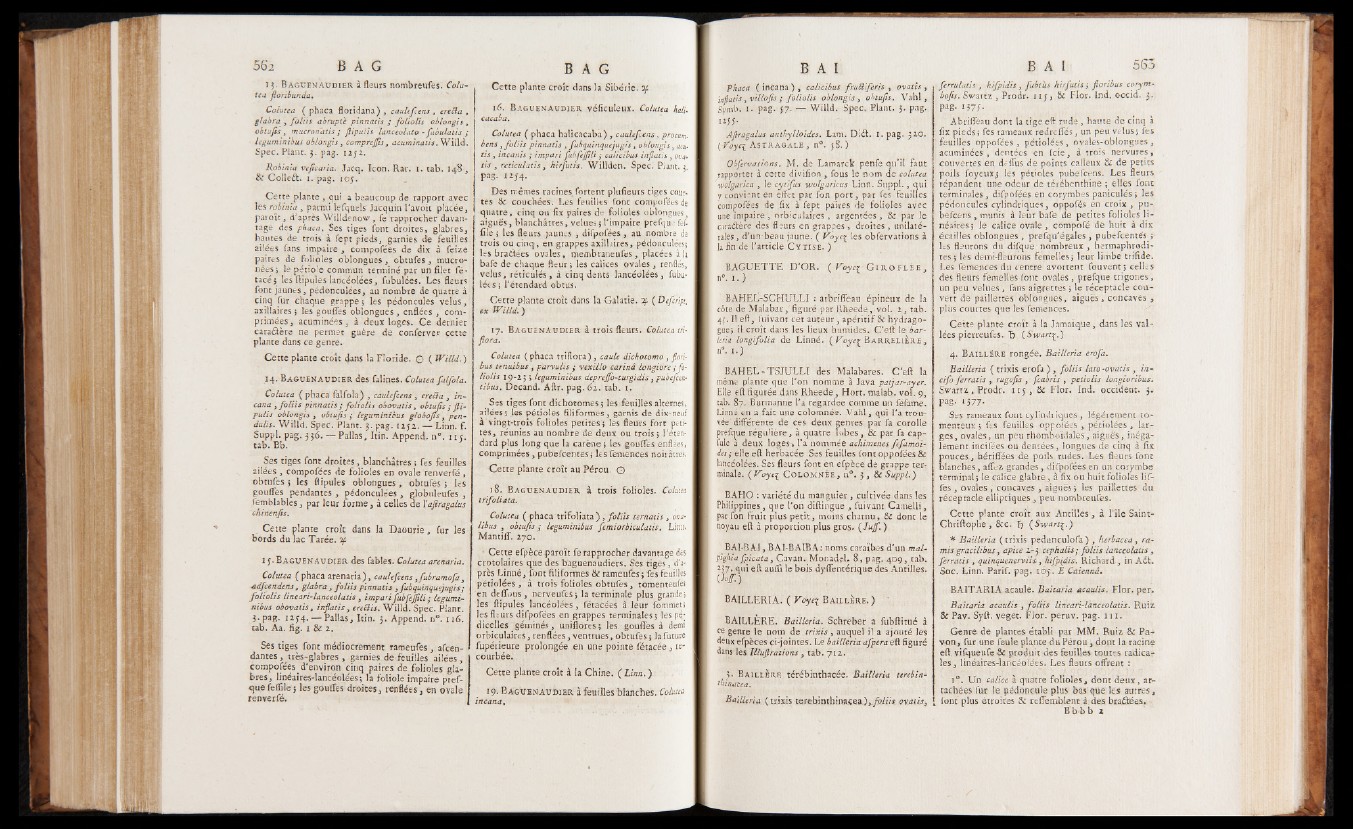 562 B A G
13. BAGUENAUDIER à fleurs nombreuſes. Colu-
tea floribunda.
Colutea (phaca floridana), cauleſcens, erecta,
glabra, foliis abruptè pinnatis; foliolis oblongis,
obtuſis, mucronatis; ſtipulis lanceolato-ſubulatis;
leguminibus oblongis, compreſſis, acuminatis. Willd.
Spec. Plant. 3. pag. 1252.
Robinia veſicaria. Jacq. Icon. Rar. 1. tab. 148,
& Collect. 1. pag. 105.
Cette plante, qui a beaucoup de rapport avec
les robinia, parmi leſquels Jacquin l'avoit placée,
paroît, d'après Willdenow, ſe rapprocher davan-
tage des phaca. Ses tiges ſont droites, glabres,
hautes de trois à ſept pieds, garnies de feuilles
ailées ſans impaire, compoſées de dix à ſeize
paires de folioles oblongues, obtuſes, mucro-
nées; le pétiole commun terminé par un filet ſé-
tacé; les ſtipules lancéolées, ſubulées. Les fleurs
ſont jaunes, pédonculées, au nombre de quatre à
cinq ſur chaque grappe; les pédoncules velus,
axillaires; les gouſſes oblongues, enflées, com-
primées, acuminées, à deux loges. Ce dernier
caractère ne permet guère de conſerver cette
plante dans ce genre.
Cette plante croît dans la Floride. ☉ (Willd.)
14. BAGUENAUDIER des ſalines. Colutea ſalſola.
Colutea (phaca ſalſola), cauleſcens, erecta, in-
cana, foliis pinnatis; foliolis obovatis, obtuſis; ſti-
pulis oblongis, obtuſis; leguminibus globoſis, pen-
dulis. Willd. Spec. Plant. 3. pag. 1252. — Linn. f.
Suppl. pag. 336. — Pallas, Itin. Append. n°. 115.
tab. Bb.
Ses tiges ſont droites, blanchâtres; ſes feuilles
ailées, compoſées de folioles en ovale renverſé,
obtuſes; les ſtipules oblongues, obtuſes; les
gouſſes pendantes, pédonculées, globuleuſes,
ſemblables, par leur forme, à celles de l'aſtragalus
chinenſis.
Cette plante croît dans la Daourie, ſur les
bords du lac Tarée. ♃
15. BAGUENAUDIER des ſables. Colutea arenaria.
Colutea (phaca arenaria), cauleſcens, ſubramoſa,
adſcendens, glabra, foliis pinnatis, ſubquinquejugis;
foliolis lineari-lanceolatis, impari ſubſeſſili; legumi-
nibus obovatis, inflatis, erectis. Willd. Spec. Plant.
3. pag. 1254. — Pallas, Itin. 3. Append. n°. 116.
tab. Aa. fig. 1 & 2.
Ses tiges ſont médiocrement rameuſes, aſcen-
dantes, très-glabres, garnies de feuilles ailées,
compoſées d'environ cinq paires de folioles gla-
bres, linéaires-lancéolées; la foliole impaire preſ-
que ſeſſile; les gouſſes droites, renflées, en ovale
renverſé.
B A G
Cette plante croît dans la Sibérie. ♃
16. BAGUENAUDIER véſiculeux. Colutea hali-
cacaba.
Colutea (phaca halicacaba), cauleſcens, procum-
bens, foliis pinnatis, ſubquinquejugis, oblongis, acu-
tis, incanis; impari ſubſeſſili; calicibus inflatis, ova-
tis, reticulatis, hirſutis. Willden. Spec. Plant. 3.
pag. 1254.
Des mêmes racines ſortent pluſieurs tiges cour-
tes & couchées. Les feuilles ſont compoſées de
quatre, cinq ou ſix paires de folioles oblongues,
aiguës, blanchâtres, velues; l'impaire preſque ſeſ-
ſile; les fleurs jaunes, diſpoſées, au nombre de
trois ou cinq, en grappes axillaires, pédonculées;
les bractées ovales, membraneuſes, placées à la
baſe de chaque fleur; les calices ovales, renflés,
velus, réticulés, à cinq dents lancéolées, ſubu-
lées; l'étendard obtus.
Cette plante croît dans la Galatie. ♃ (Deſcript.
ex Willd.)
17. BAGUENAUDIER à trois fleurs. Colutea tri-
flora.
Colutea (phaca triflora), caule dichotomo, flori-
bus tenuibus, parvulis; vexillo carinâ longiore; fo-
liolis 19-23; leguminibus depreſſo-turgidis, pubeſcen-
tibus. Decand. Aſtr. pag. 62. tab. 1.
Ses tiges ſont dichotomes; les feuilles alternes,
ailées; les pétioles filiformes, garnis de dix-neuf
à vingt-trois folioles petites; les fleurs fort peti-
tes, réunies au nombre de deux ou trois; l'éten-
dard plus long que la carène; les gouſſes enflées,
comprimées, pubeſcentes; les ſemences noirâtres.
Cette plante croît au Pérou. ☉
18. BAGUENAUDIER à trois folioles. Colutea
trifoliata.
Colutea (phaca trifoliata), foliis ternatis, ova-
libus, obtuſis; leguminibus ſemiorbiculatis. Linn.
Mantiſſ. 270.
Cette eſpèce paroît ſe rapprocher davantage des
crotolaires que des baguenaudiers. Ses tiges, d'a-
près Linné, ſont filiformes & rameuſes; ſes feuilles
pétiolées, à trois folioles obtuſes, tomenteuſes
en deſſous, nerveuſes; la terminale plus grande;
les ſtipules lancéolées, ſétacées à leur ſommet;
les fleurs diſpoſées en grappes terminales; les pé-
dicelles géminés, uniflores; les gouſſes à demi
orbiculaires, renflées, ventrues, obtuſes; la ſuture
ſupérieure prolongée en une pointe ſétacée, re-
courbée.
Cette plante croît à la Chine. (Linn.)
19. BAGUENAUDIER à feuilles blanches. Colutea
incana.
B A I
Phaca (incana), calicibus fructiferis, ovatis,
inflatis, villoſis; foliolis oblongis, obtuſis. Vahl,
Symb. 1. pag. 57. — Willd. Spec. Plant. 3. pag.
1255.
Aſtragalus anthylloides. Lam. Dict. 1. pag. 320.
(Voyez ASTRAGALE, n°. 38.)
Obſervations. M. de Lamarck penſe qu'il faut
rapporter à cette diviſion, ſous le nom de colutea
wolgarica, le cytiſus wolgaricus Linn. Suppl., qui
y convient en effet par ſon port, par ſes feuilles
compoſées de ſix à ſept paires de folioles avec
une impaire, orbiculaires, argentées, & par le
caractère des fleurs en grappes, droites, unilaté-
rales, d'un beau jaune. (Voyez les obſervations à
la fin de l'article CYTISE.)
BAGUETTE D'OR. (Voyez GIROFLÉE,
n°. 1.)
BAHEL-SCHULLI: arbriſſeau épineux de la
côte de Malabar, figuré par Rheede, vol. 2, tab.
45. Il eſt, ſuivant cet auteur, apéritif & hydrago-
gue; il croît dans les lieux humides. C'eſt le bar-
leria longifolia de Linné. (Voyez BARRELIÈRE,
n°. 1.)
BAHEL-TSJULLI des Malabares. C'eſt la
même plante que l'on nomme à Java patjar-ayer.
Elle eſt figurée dans Rheede, Hort. malab. vol. 9,
tab. 87. Burmanne l'a regardée comme un ſéſame.
Linné en a fait une colomnée. Vahl, qui l'a trou-
vée différente de ces deux genres par ſa corolle
preſque régulière, à quatre lobes, & par ſa cap-
ſule à deux loges, l'a nommée achimenes ſeſamoi-
des; elle eſt herbacée. Ses feuilles ſont oppoſées &
lancéolées. Ses fleurs ſont en eſpèce de grappe ter-
minale. (Voyez COLOMNÉE, n°. 3, & Suppl.)
BAHO: variété du manguier, cultivée dans les
Philippines, que l'on diſtingue, ſuivant Camelli,
par ſon fruit plus petit, moins charnu, & dont le
noyau eſt à proportion plus gros. (Juſſ.)
BAI-BAI, BAI-BAIBA: noms caraïbes d'un mal-
pighia ſpicata, Cavan. Monadel. 8, pag. 409, tab.
237, qui eſt auſſi le bois dyſſentérique des Antilles.
(Juſſ.)
BAILLERIA. (Voyez BAILLÈRE.)
BAILLÈRE. Bailleria. Schreber a ſubſtitué à
ce genre le nom de trixis, auquel il a ajouté les
deux eſpèces ci-jointes. Le bailleria aſpera eſt figuré
dans les Illuſtrations, tab. 712.
3. BAILLÈRE térébinthacée. Bailleria terebin-
thinacea.
Bailleria (trixis terebinthinacea), foliis ovatis,
B A I 563
ſerrulatis, hiſpidis, ſubtùs hirſutis; floribus corym-
boſis. Swartz, Prodr. 115, & Flor. Ind. occid. 3.
pag. 1375.
Abriſſeau dont la tige eſt rude, haute de cinq à
ſix pieds; ſes rameaux redreſſés, un peu velus; ſes
feuilles oppoſées, pétiolées, ovales-oblongues,
acuminées, dentées en ſcie, à trois nervures,
couvertes en deſſus de points calleux & de petits
poils ſoyeux; les pétioles pubeſcens. Les fleurs
répandent une odeur de térébenthine; elles ſont
terminales, diſpoſées en corymbes paniculés; les
pédoncules cylindriques, oppoſés en croix, pu-
beſcens, munis à leur baſe de petites folioles li-
néaires; le calice ovale, compoſé de huit à dix
écailles oblongues, preſqu'égales, pubeſcentes;
les fleurons du diſque nombreux, hermaphrodi-
tes; les demi-fleurons femelles; leur limbe trifide.
Les ſemences du centre avortent ſouvent; celles
des fleurs femelles ſont ovales, preſque trigones,
un peu velues, ſans aigrettes; le réceptacle cou-
vert de paillettes oblongues, aiguës, concaves,
plus courtes que les ſemences.
Cette plante croît à la Jamaïque, dans les val-
lées pierreuſes. ♄ (Swartz.)
4. BAILLÈRE rongée. Bailleria eroſa.
Bailleria (trixis eroſa), foliis lato-ovatis, in-
ciſo ſerratis, rugoſis, ſcabris, petiolis longioribus.
Swartz, Prodr. 115, & Flor. Ind. occident. 3.
pag. 1377.
Ses rameaux ſont cylindriques, légérement to-
menteux; ſes feuilles oppoſées, pétiolées, lar-
ges, ovales, un peu rhomboïdales, aiguës, inéga-
lement inciſées ou dentées, longues de cinq à ſix
pouces, hériſſées de poils rudes. Les fleurs ſont
blanches, aſſez grandes, diſpoſées en un corymbe
terminal; le calice glabre, à ſix ou huit folioles liſ-
ſes, ovales, concaves, aiguës; les paillettes du
réceptacle elliptiques, peu nombreuſes.
Cette plante croît aux Antilles, à l'île Saint-
Chriſtophe, &c. ♄ (Swartz.)
* Bailleria (trixis pedunculoſa), herbacea, ra-
mis gracilibus, apice 2-3 cephalis; foliis lanceolatis,
ſerratis, quinquenerviis, hiſpidis. Richard, in Act.
Soc. Linn. Pariſ. pag. 105. E Caïennâ.
BAITARIA acaule. Baitaria acaulis. Flor. per.
Baitaria acaulis, foliis lineari-lanceolatis. Ruiz
& Pav. Syſt. veget. Flor. peruv. pag. 111.
Genre de plantes établi par MM. Ruiz & Pa-
von, ſur une ſeule plante du Pérou, dont la racine
eſt viſqueuſe & produit des feuilles toutes radica-
les, linéaires-lancéolées. Les fleurs offrent:
1°. Un calice à quatre folioles, dont deux, at-
tachées ſur le pédoncule plus bas que les autres,
ſont plus étroites & reſſemblent à des bractées.
Bbbb 2